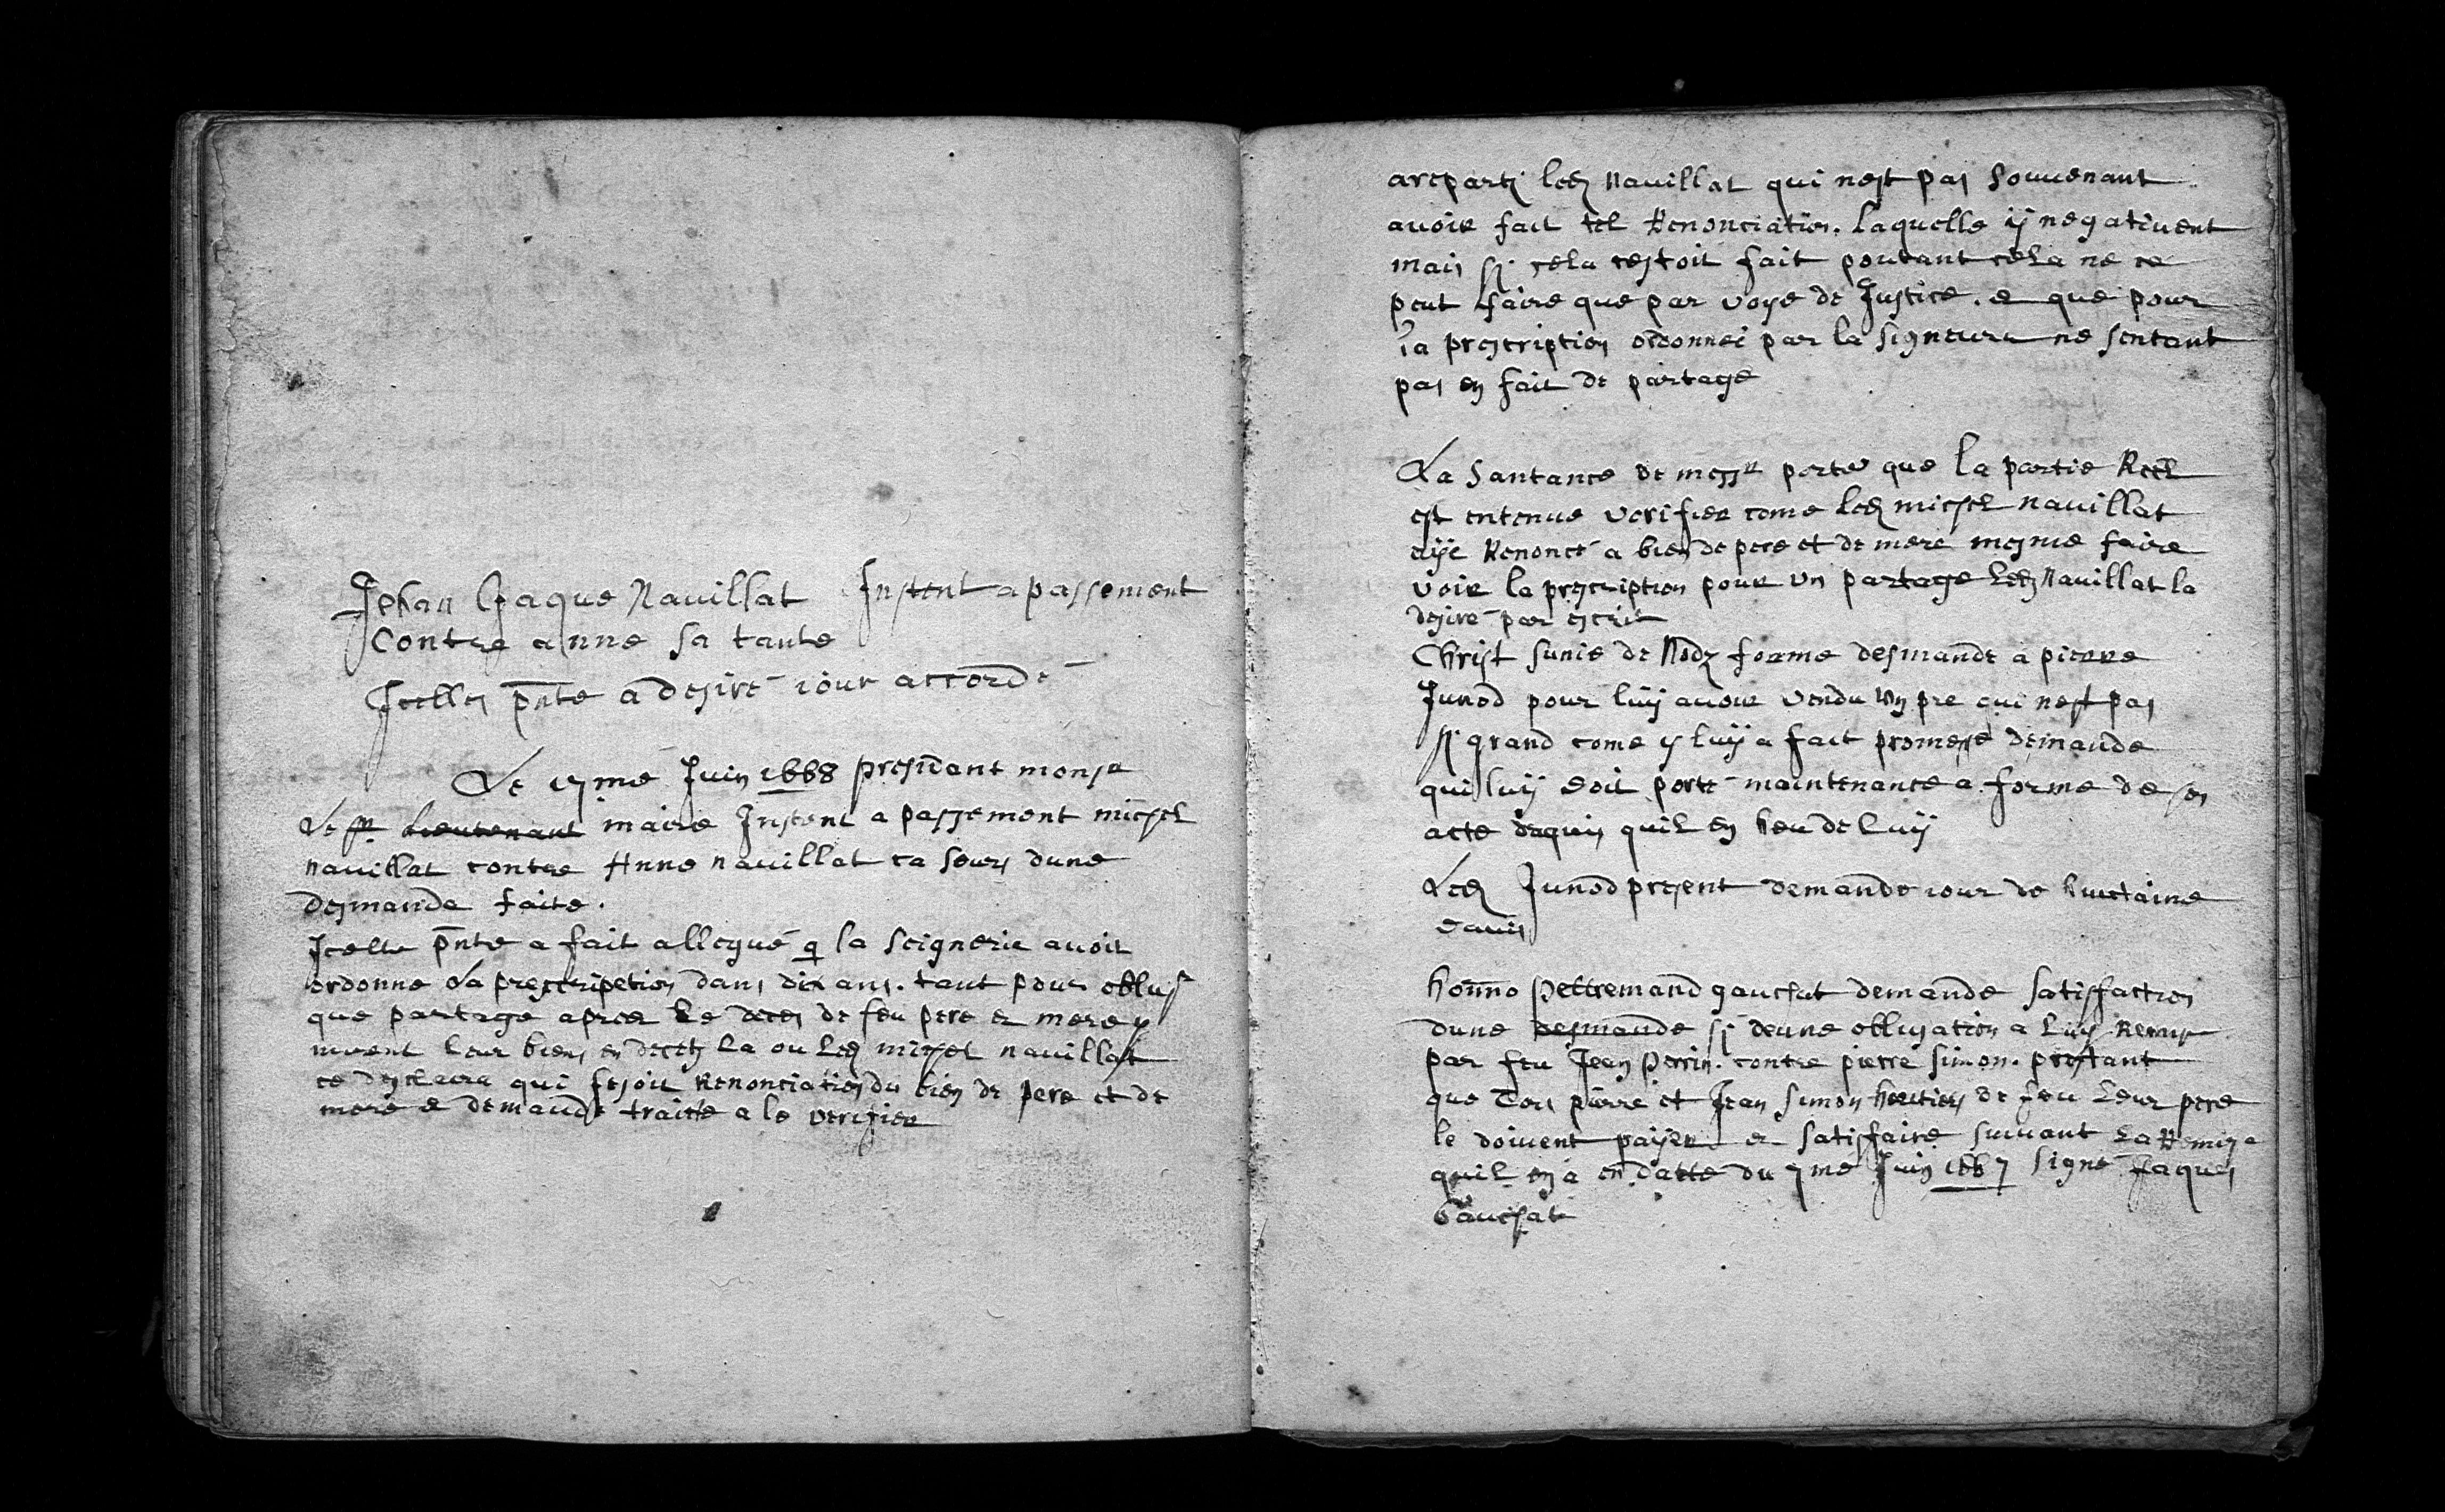 Jehan Jaque Nauillat Instent a passement
Contre anne sa tante
Icelles pnte a desiré iour accordé
Le me Juin 1668 presidant monsr
Le sr Lieutenant maire Instent a passement michel
nauillat contre Anne nauillat ca seurs dune
desmande faite.
Icelle pnte a fait allegué q la seignerie auoit
ordonne La prescripetion dans dix ans. tant pour obligs
que partage apres Le deces de feu pere et mere y
leur biens en La ou Led michel nauillat
ce desclaira qui fesoit Renonciation du bien de pere et de
mere e demande traitte a le verifier
areparti led Nauillat qui nest pas souuenant
auoir fait tel Renonciation. laquelle ij negatiuent
mais sy cela cestoit fait poutant cela ne ce
peut faire que par voye de Justice. e que pour
la prescription ordonnei par la signeure ne sentant
pas en fait de partage
La santance de messr porte que la partie
est entenue verifier come led michel nauillat
aije Renoncé a bien de pere et de mere mesme faire
voir la prescription pour un partage Led Nauillat la
desiré par escrit
Christ sunie de Nodz forme desmande a pierre
Junod pour luij auoir vendu un pre qui nest pas
sy grand come y luij a fait promesse demande
qui luij soit porté maintenance a forme de son
acte daquis quil en heu de luij
Led Junod present demande iour de huictaine
dauis
honno Pettremand gauchat demande satisfaction
dune desmande sy deune obligation a luij Remis
par feu Jean Perrin. contre pierre simon. prestant
que pierre et Jean simon heritiers de feu Leur pere
le doiuent paijer et satisfaire suiuant La Remise
quil en a en datte du 7me Juin 1667 signé Jaques
Gauchat